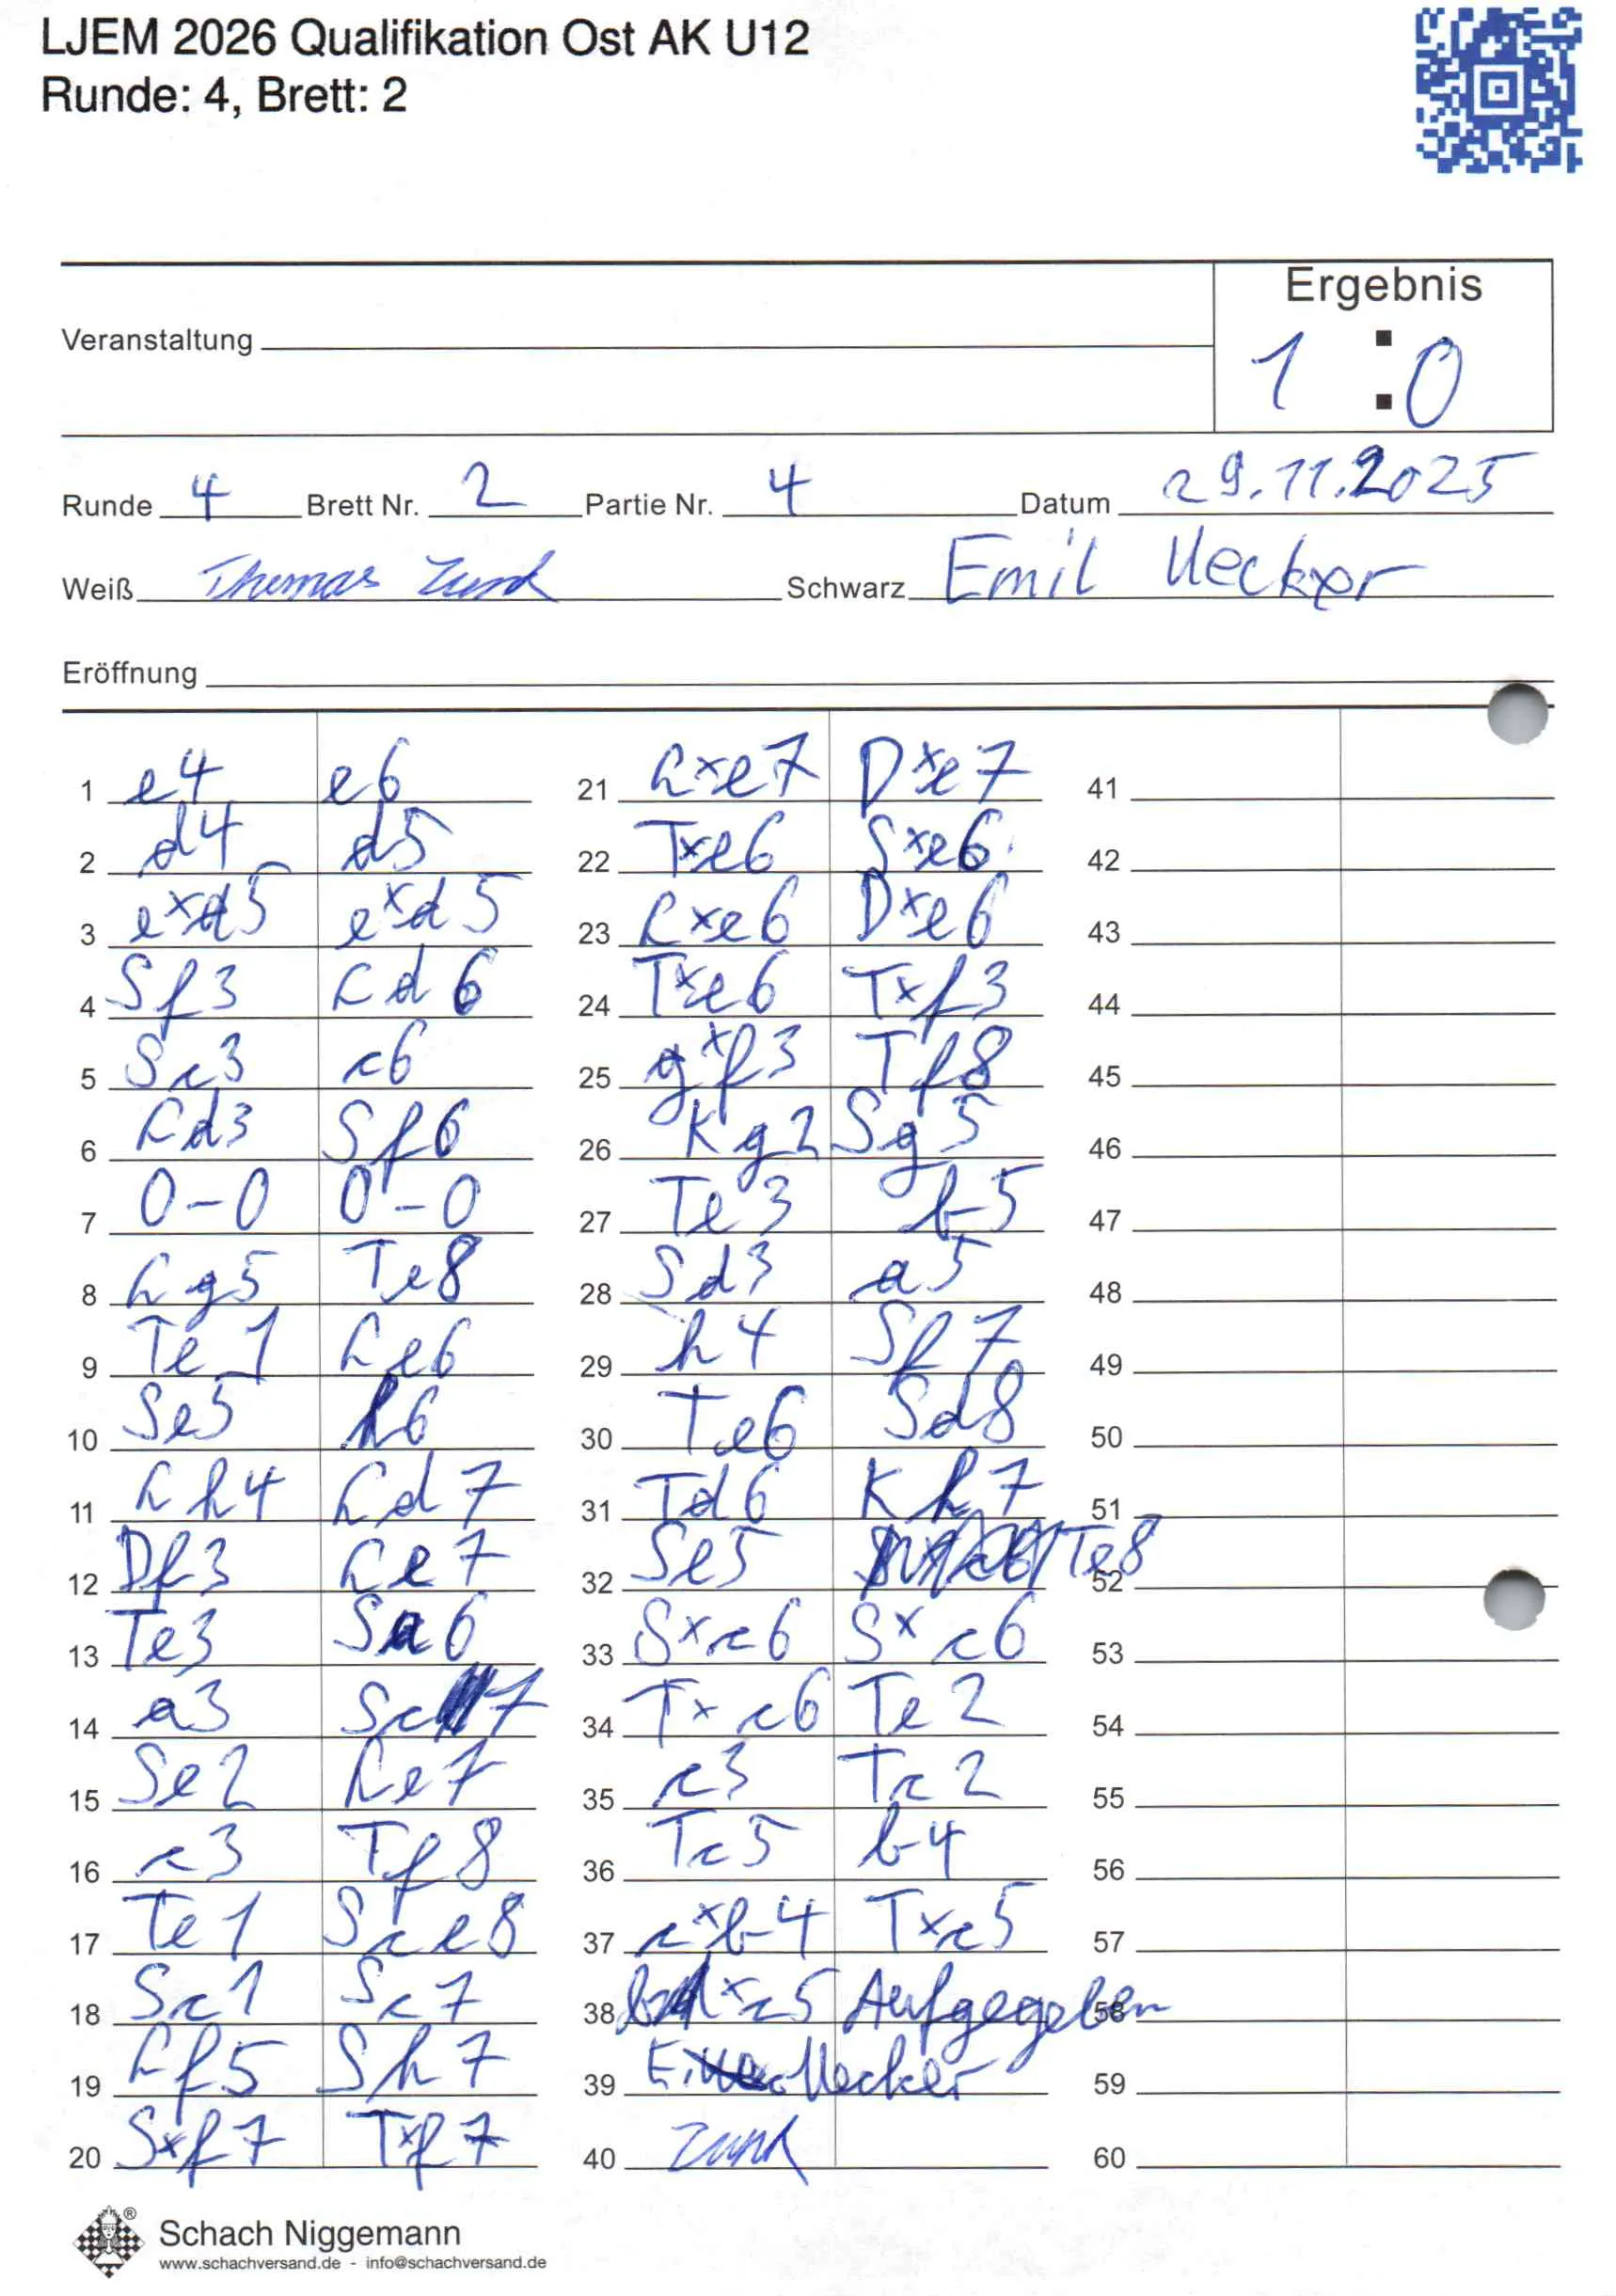 LJEM 2026 Qualifikation Ost AK U12
Runde: 4, Brett: 2
Ergebnis
Veranstaltung
1 : 0
Runde 4 Brett Nr. 2 Partie Nr. 4 Datum 29.11.2025
Weiß Thomas Zunk Schwarz Emil Uecker
Eröffnung
1 e4 e6
2 d4 d5
3 exd5 exd5
4 Sf3 Ld6
5 Sc3 c6
6 Ld3 Sf6
7 0-0 0-0
8 Lg5 Te8
9 Te1 Le6
10 Se5 h6
11 Lh4 Ld7
12 Df3 Le7
13 Te3 Sa6
14 a3 Sc7
15 Se2 Le7
16 c3 Tf8
17 Te1 Sce8
18 Sc1 Sc7
19 Lf5 Sh7
20 Sxf7 Txf7
21 Lxe7 Dxe7
22 Txe6 Sxe6
23 Lxe6 Dxe6
24 Txe6 Txf3
25 gxf3 Tf8
26 Kg2 Sg5
27 Te3 b5
28 Sd3 a5
29 h4 Sf7
30 Te6 Sd8
31 Td6 Kh7
32 Se5 Te8
33 Sxc6 Sxc6
34 Txc6 Te2
35 c3 Tc2
36 Tc5 b4
37 cxb4 Txc5
38 xc5 Aufgegeben
39 Uecker
40 Zunk
41
42
43
44
45
46
47
48
49
50
51
52
53
54
55
56
57
58
59
60
Schach Niggemann
www.schachversand.de - info@schachversand.de